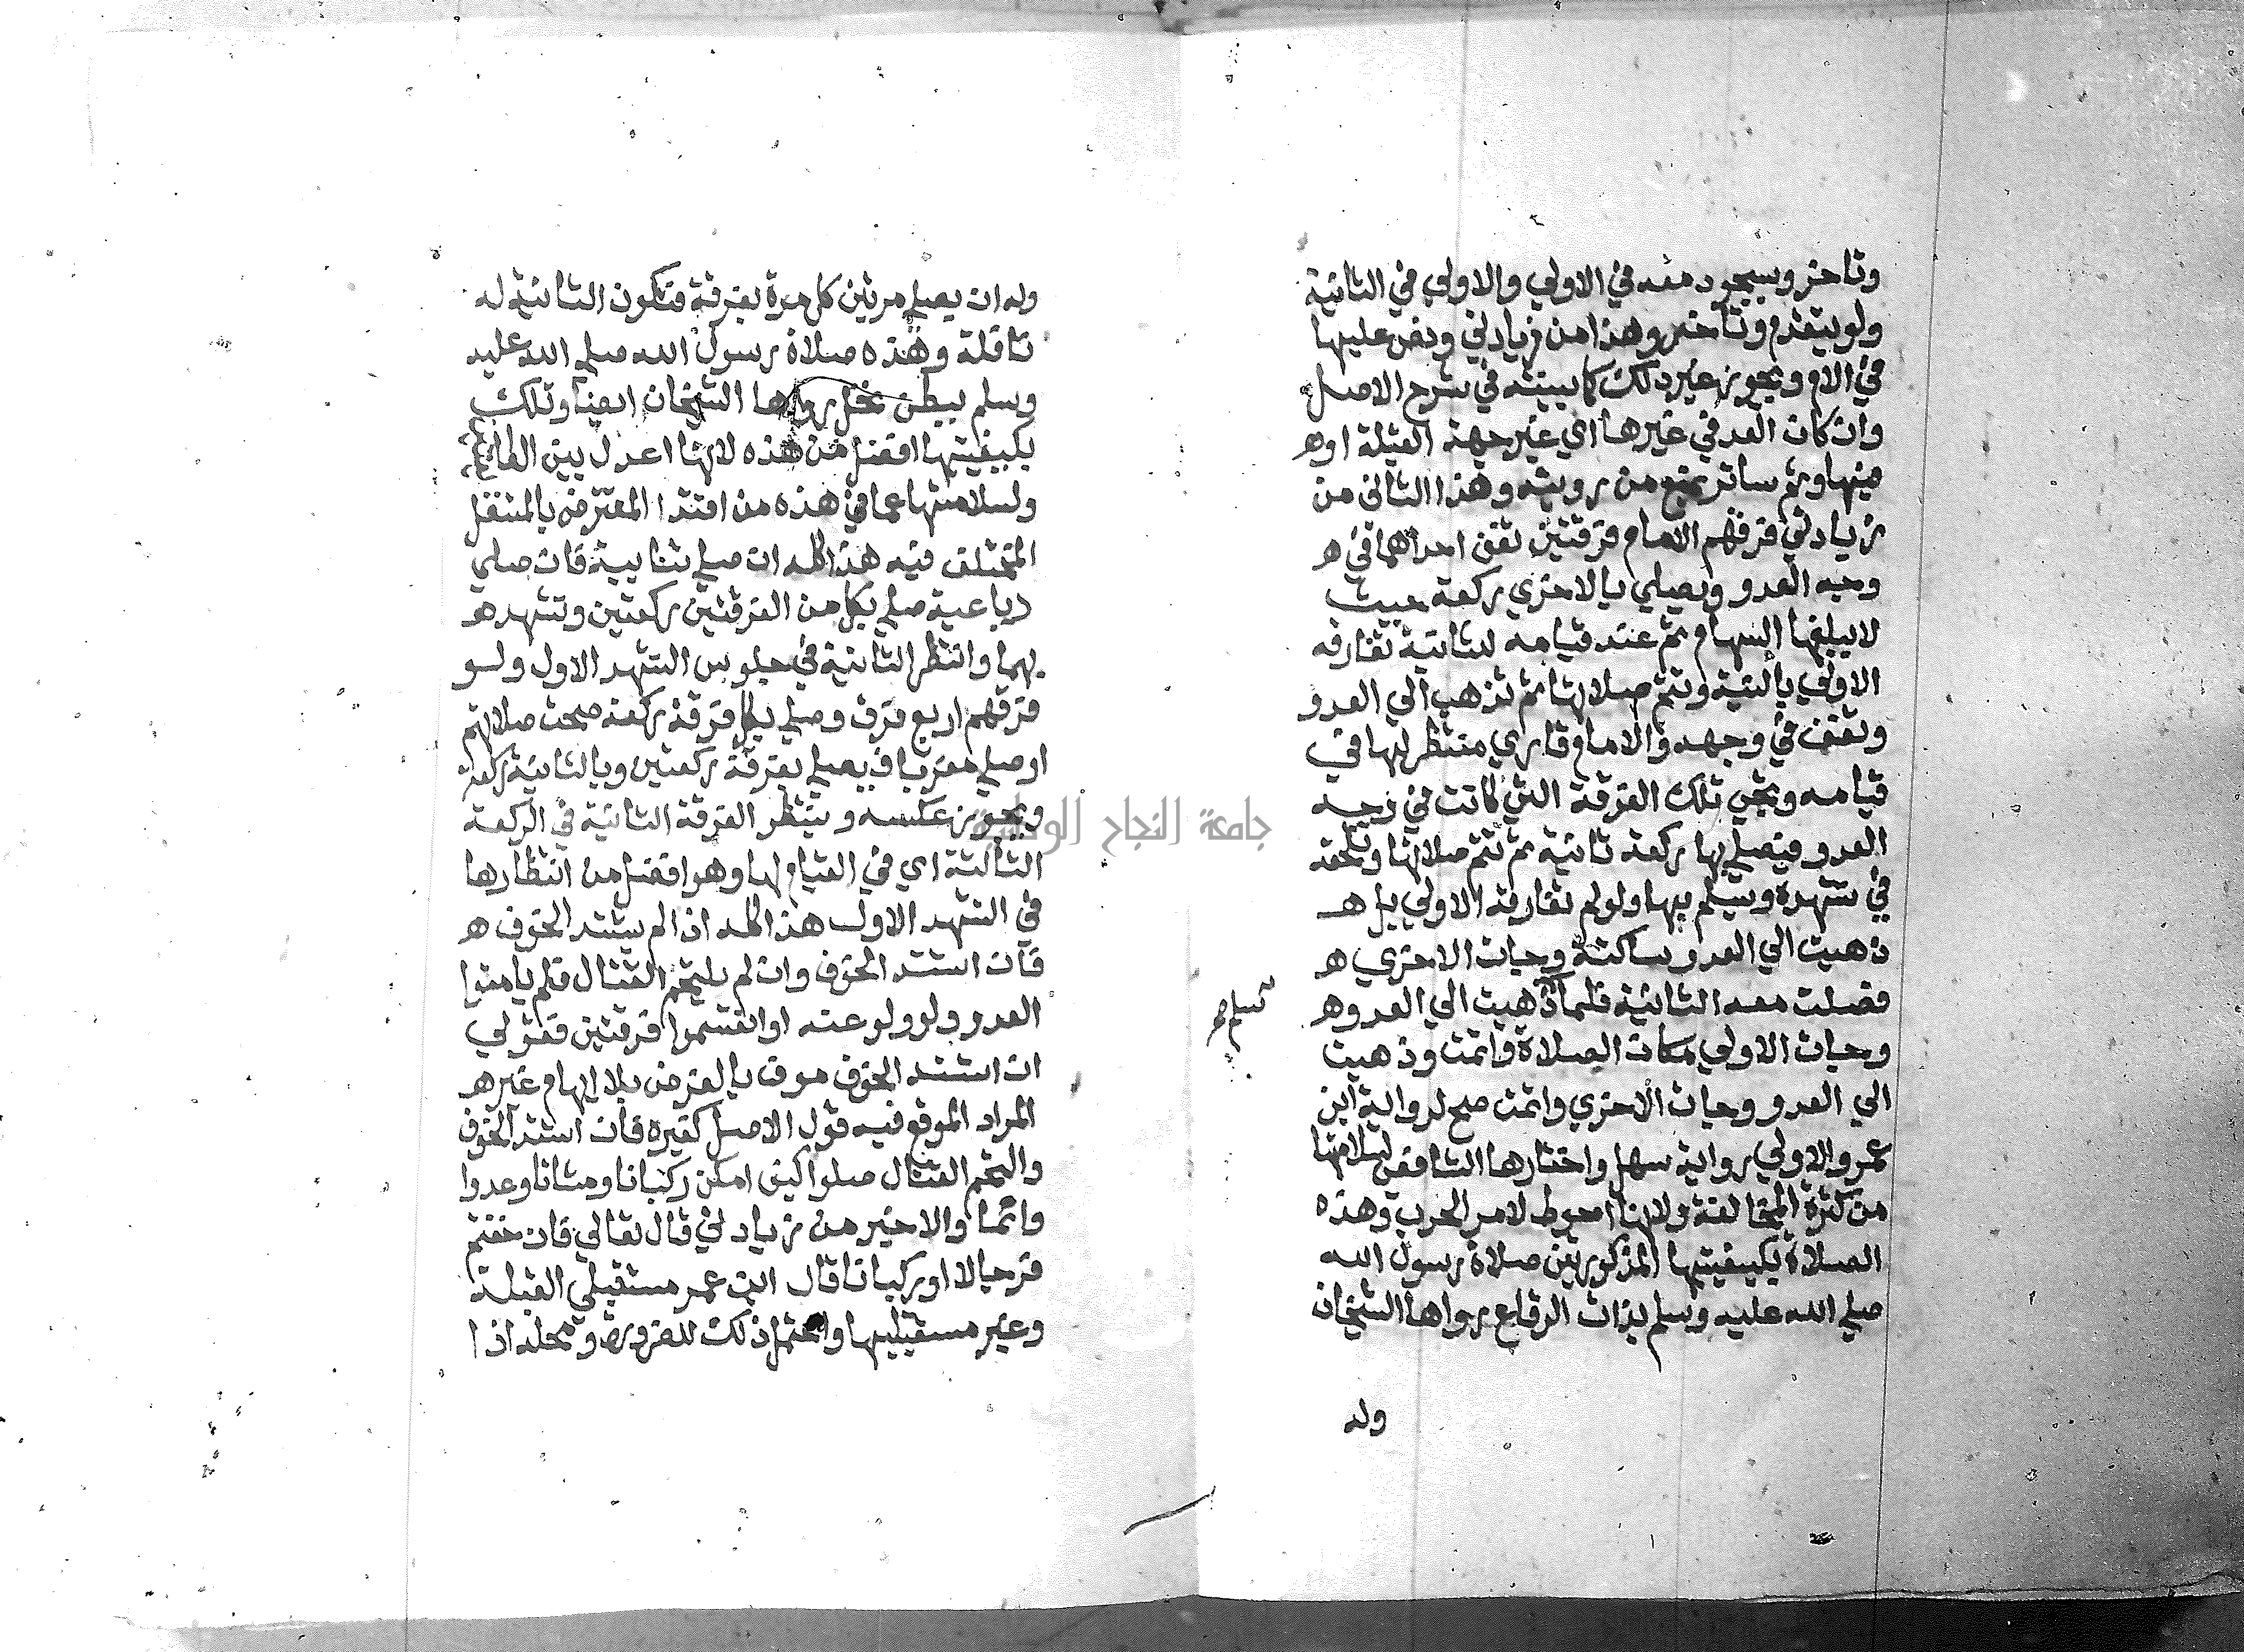 وتاخر وبسجود معه في الاولي والاولي في الثانية
ولو بتقدم وتاخر وهذا من زيادتي ونص عليها
في الام ويجوز غير ذلك كما بينته في شرح الاصل
وان كان العدو في غيرها اي غير جهة القبلة او ه
فيها وثم ساتر يمنع من رويته وهذا الثاني من
زيادتي فرقهم الامام فرقتين تقف احداهما في ه
وجه العدو ويصلي بالاخري ركعة حيث
لا يبلغها السهام ثم عند قيامه للثانية تفارقه
الاولي بالنية وتتم صلاتها ثم تذهب الي العدو
وتقف في وجهه والامام قاري منتظر لها في
قيامه وتجي تلك الفرقة التي كانت في وجه
العدو فيصلي بها ركعة ثانية ثم تتم صلاتها وتلحقه
في تشهده ويسلم بها ولو لم تفارقه الاولي بل ه
ذهبت الي العدو ساكتة وجات الاخري ه
فصلت معه الثانية فلما ذهبت الي العدو ه
وجات الاولي مكان الصلاة واتمت وذهبت
الي العدو وجات الاخري واتمت صح لرواية ابن
عمر والاولي رواية سهل واختارها الشافعي لسلامتها
من كثرة المخالفة ولانها احوط لامر الحرب وهذه
الصلاة بكيفيتها المذكورتين صلاة رسول الله
صلي الله عليه وسلم بذات الرقاع رواها الشيخان
وله
وله ان يصلي مرتين كل مرة بفرقة فتكون الثانية له
نافلة وهذه صلاة رسول الله صلي الله عليه
وسلم ببطن نخل رواها الشيخان ايضا وتلك
بكيفيتها افضل من هذه لانها اعدل بين
ولسلامتها عما في هذه من اقتدا المفترض بالمتنفل
المختلف فيه هذا كله ان صلي ثنايية فان صلي
رباعية صلي بكل من الفرقتين ركعتين وتشهد ه
بهما وانتظر الثانية في جلوس التشهد الاول ولو
فرقهم اربع فرق وصلي بكل فرقة ركعة صحت صلاتهم
او صلي مغربا فيصلي بفرقة ركعتين وبالثانية ركعة
ويجوز عكسه وينتظر الفرقة الثانية في الركعة
الثالثة اي في القيام لها وهو افضل من انتظارها
في التشهد الاول هذا كله اذا لم يشتد الخوف ه
فان اشتد الخوف وان لم يلتحم القتال فلم يامنوا
العدو ولو ولو عنه او انقسموا فرقتين فقولي
ان اشتد الخوف موف بالغرض بلا ايهام غير ه
المراد الموقع فيه قول الاصل كغيره فان اشتد الخوف
والتحم القتال صلوا كيف امكن ركبانا ومشاتا وعدوا
وائما والاخير من زيادتي قال تعالي فان خفتم
فرجالا او ركبانا قال ابن عمر مستقبلي القبلة
وغير مستقبليها واحتمل ذلك للضرورة ومحله اذا
جامعة النجاح الوطنية